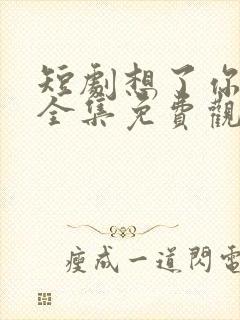 短劇想了你
全集免費觀
瘦成一道閃電